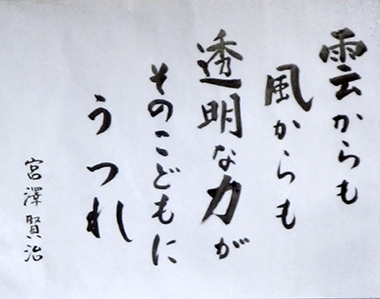 雲からも
風からも
透明な力が
そのこどもに
うつれ
宮澤賢治